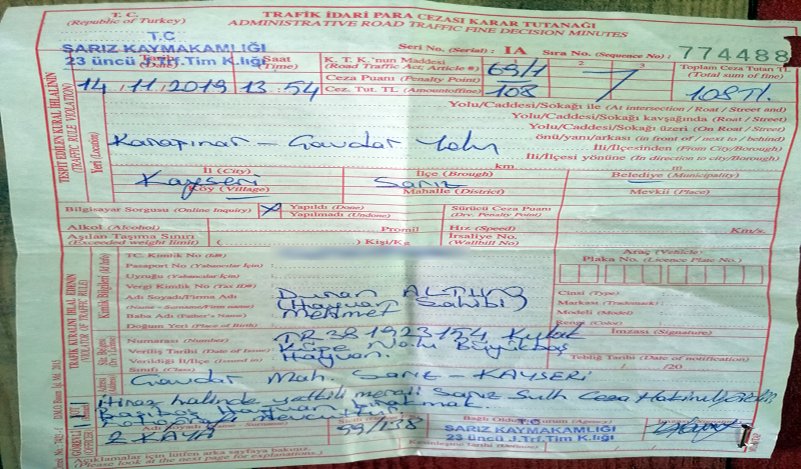 T. C.
(Republic of Turkey)
TRAFİK İDARİ PARA CEZASI KARAR TUTANAĞI
ADMINISTRATIVE ROAD TRAFFIC FINE DECISION MINUTES
T.C
SARIZ KAYMAKAMLIĞI
23 üncü J.Trf.Tim K.lığı
Seri No. (Serial) : IA Sıra No. (Sequence No) : 774488
Saat (Time)
14 / 11 / 2019 13 : 54
K. T. K.'nun Maddesi (Road Traffic Act, Article #) 69/1
2 3
Ceza Puanı (Penalty Point)
Cez. Tut. TL (Amountoffine) 108
Toplam Ceza Tutarı TL (Total sum of fine)
108 TL.
TESBİT EDİLEN KURAL İHLALİNİN (TRAFFIC RULE VIOLATION)
Yeri (Location)
Yolu/Caddesi/Sokağı ile (At intersection / Roat / Street and)
Yolu/Caddesi/Sokağı kavşağında (Roat / Street)
Yolu/Caddesi/Sokağı üzeri (On Roat / Street)
önü/yanı/arkası (in front of / next to / behind)
İli/İlçesinden (From City/Borough)
İli/İlçesi yönüne (In direction to city/Borough)
km. m
İl (City) Kayseri
İlçe (Brough) Sarız
Belediye (Municipality)
Köy (Village)
Mahalle (District)
Mevkii (Place)
Bilgisayar Sorgusu (Online Inquiry) X Yapıldı (Done)
Yapılmadı (Undone)
Sürücü Ceza Puanı (Drv. Penalty Point)
Alkol (Alcohol) Promil
Hız (Speed) Km/s.
Aşılan Taşıma Sınırı (Exceeded weight limit) ( ) Kişi/Kg
İrsaliye No. (Wallbill No)
TRAFİK KURALINI İHLAL EDENİN (VIOLATOR OF TRAFFIC RULE)
Kimlik Bilgileri
TC. Kimlik No. (ID#)
Pasaport No (Yabancılar İçin) :
Uyruğu (Yabancılar İçin) :
Vergi Kimlik No (Tax ID#)
Adı Soyadı/Firma Adı
(Name - Surname/Firm name)
Duran ALTUNÖ
(Hayvan Sahibi)
Baba Adı (Father's Name) Mehmet
Doğum Yeri (Place of Birth)
Araç (Vehicle)
Plaka No. (Licence Plate No.)
Cinsi (Type)
Markası (Trademark)
Modeli (Model)
Rengi (Color)
İmzası (Signature)
Numarası (Number) TR 381923154 Kulak
Veriliş Tarihi (Date of Issue) Küpe Nolu Büyükbaş
Verildiği İl/İlçe (Issued in) Hayvan.
Sınıfı (Class)
Tebliğ Tarihi (Date of notification)
/ /20
Mah. Sarız - KAYSERİ
İtiraz halinde yetkili mercii Sarız Sulh Ceza Hakimliğidir
Başıboş Hayvan
GÖREVLİ (OFFICER)
Adı Soyadı
KAYA
59/138
Bağlı Olduğu Kurum (Agency)
T.C
SARIZ KAYMAKAMLIĞI
23 üncü J.Trf.Tim K.lığı
Açıklamalar için lütfen arka sayfaya bakınız.
Please look at the next page for explanations.